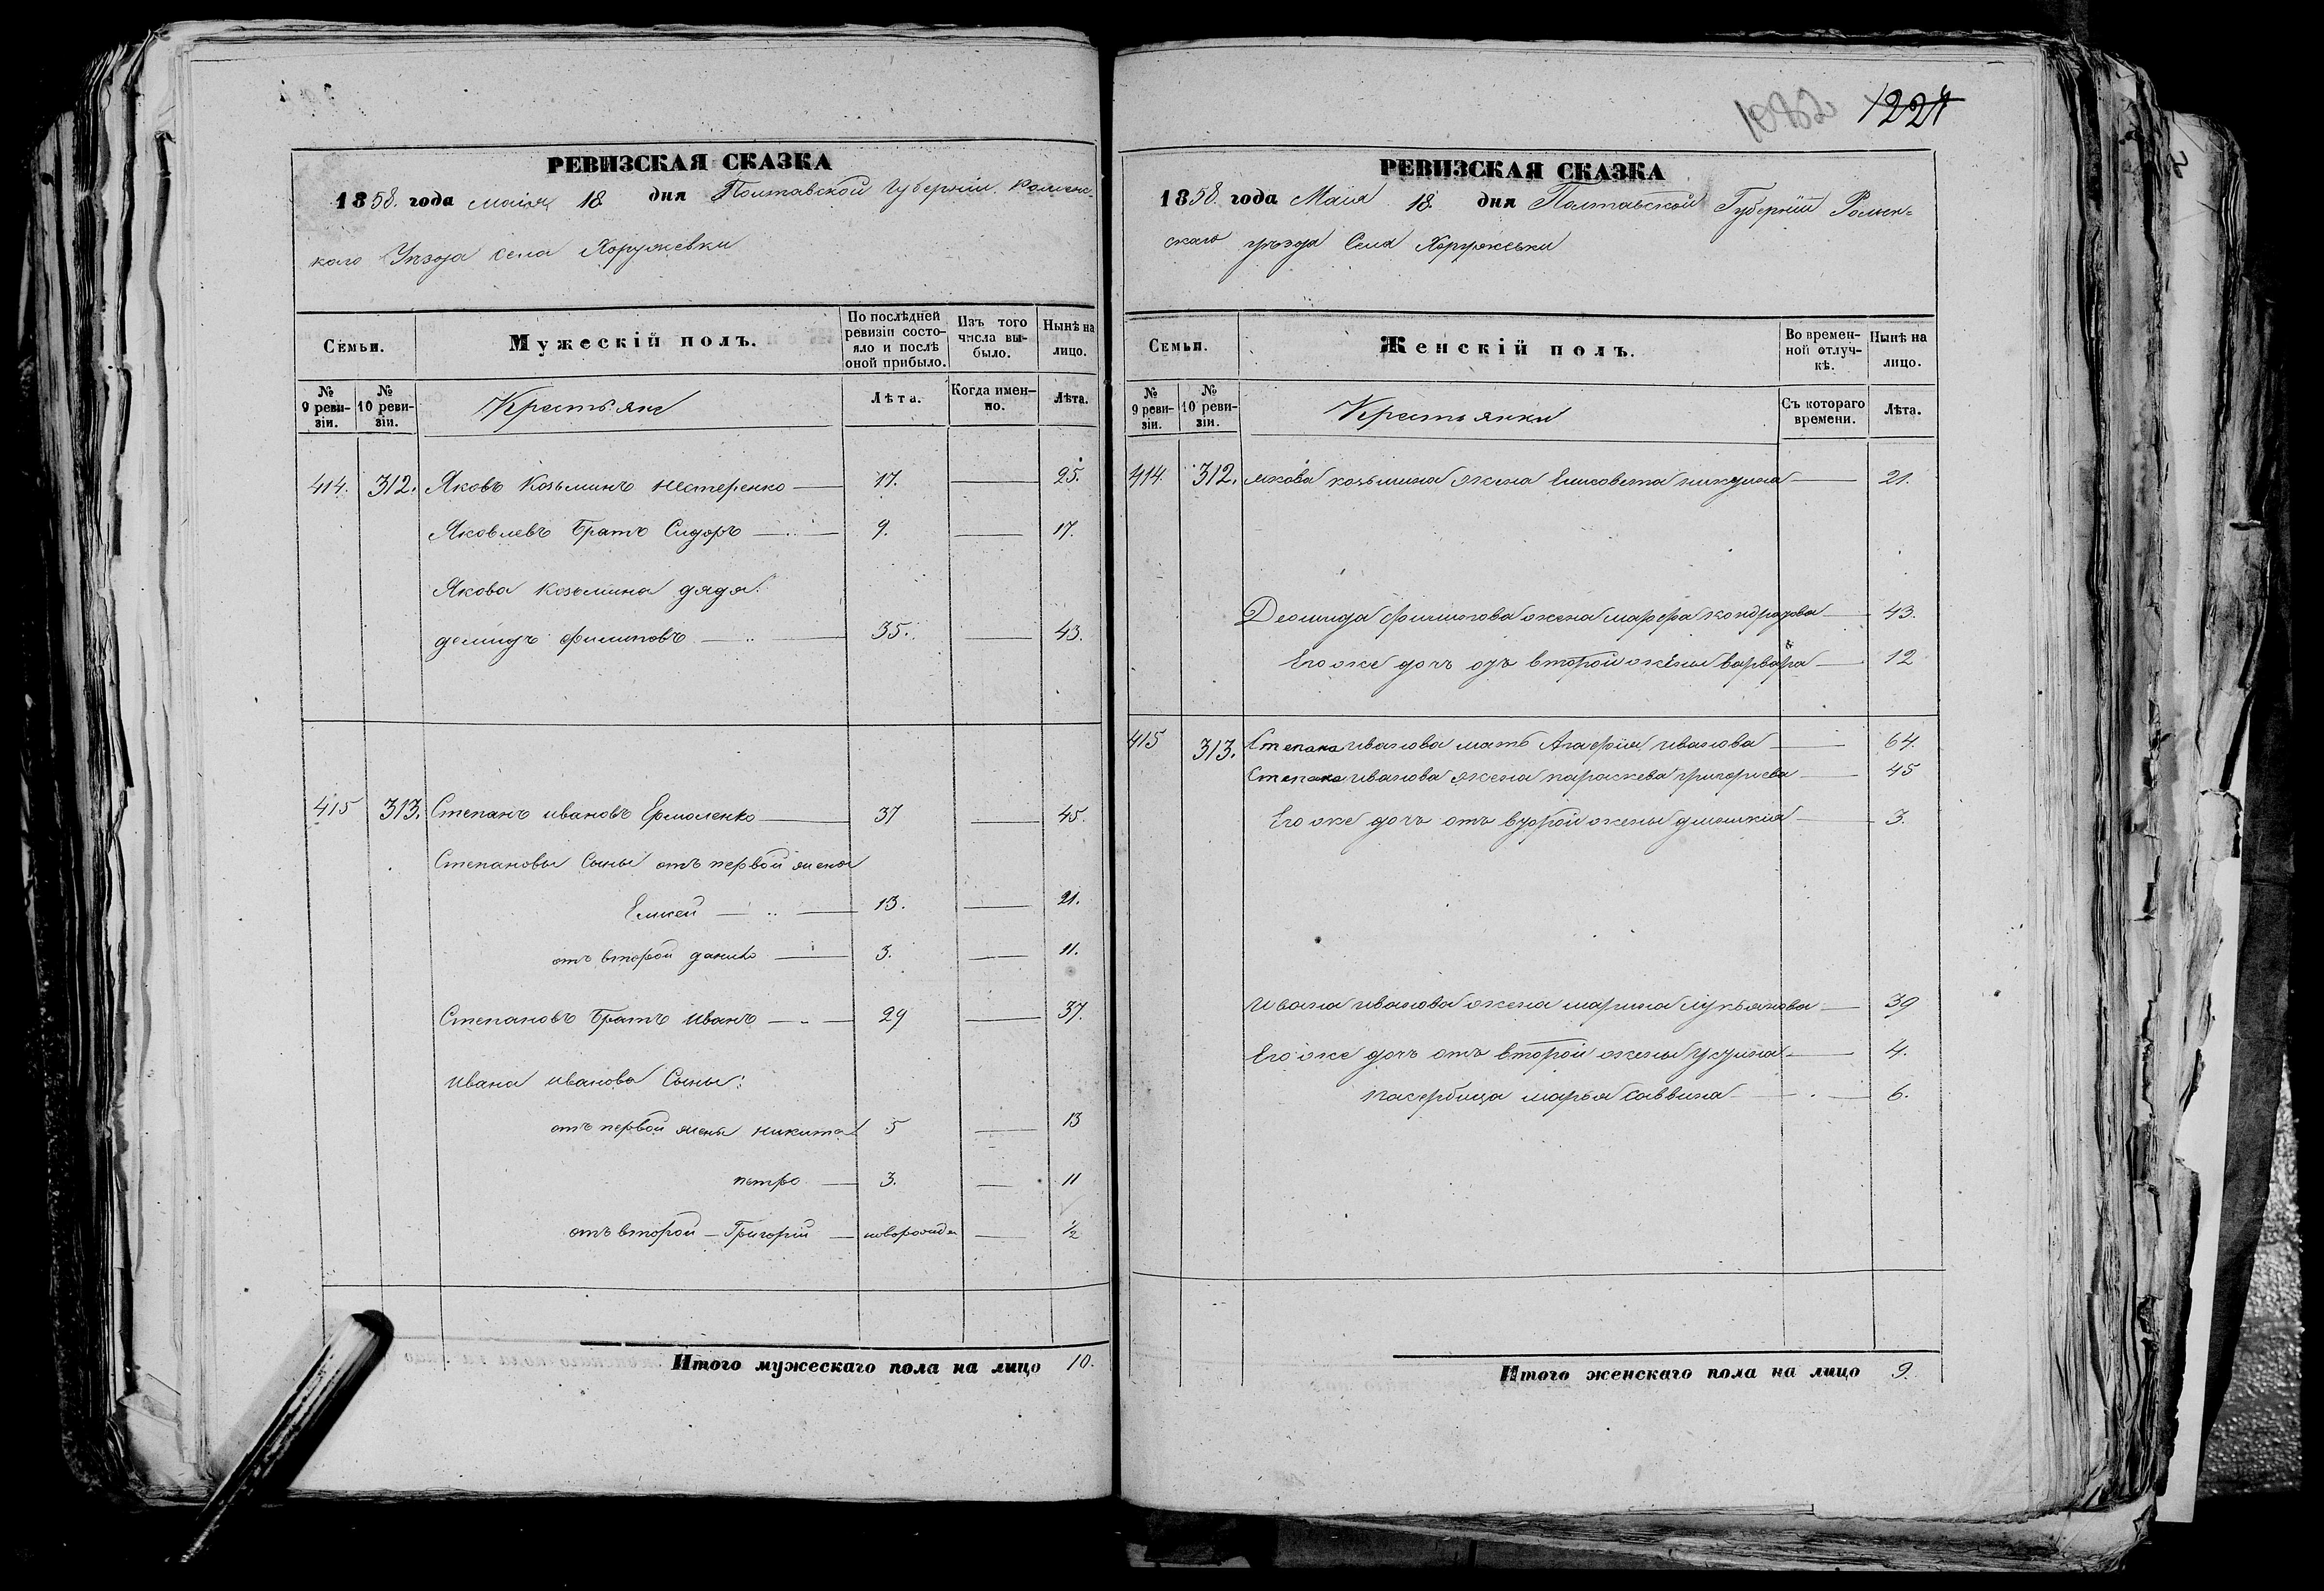 РЕВИЗСКАЯ СКАЗКА
1858. года маія 18 дня Полтавской Губерніи. Роменс-
каго Уѣзда села Хоружевки
Семьи.
Мужескій полъ.
По послѣдней ревизіи состояло и послѣ оной прибыло.
Изъ того числа выбыло.
Нынѣ на лицо.
№ 9 ревизіи.
№ 10 ревизіи.
Крестьяне
Лѣта.
Когда именно.
Лѣта.
414. 312. Яковъ Козьминъ Нестеренко — 17. — 25.
Яковлевъ Братъ Сидоръ — 9. — 17.
Якова Козьмина дядя:
демидъ филиповъ — 35. — 43.
415 313. Степанъ ивановъ Ермоленко — 37 — 45.
Степановы Сыны отъ первой жены
13. — 21.
отъ второй данило — 3. — 11.
Степановъ Братъ Иванъ — 29 — 37.
Ивана иванова Сыны:
отъ первой жены никита 5 — 13
петро — 3. — 11
отъ второй — Григорій — новорожден — 1/2
Итого мужескаго пола на лицо 10.
1224
РЕВИЗСКАЯ СКАЗКА
1858. года Маія 18. дня Полтавской Губерніи Ромен-
скаго уѣзда Села Хоружевки
Семьи.
Женскій полъ.
Во временной отлучкѣ.
Нынѣ на лицо.
№ 9 ревизіи.
№ 10 ревизіи.
Крестьянки
Съ котораго времени.
Лѣта.
414 312. якова козьмина жена Елисовета — 21.
Деомида филипова жена марфа кондратова — 43.
Его же дочь отъ второй жены варвара — 12
415 313. Степана иванова мать Агафія иванова — 64.
Степана иванова жена параскева григориева — 45
Его же дочь отъ второй жены — 3.
Ивана иванова жена марина лукьянова — 39
Его же дочь отъ второй жены устина — 4.
пасербица марья саввина — 6.
Итого женскаго пола на лицо 9.